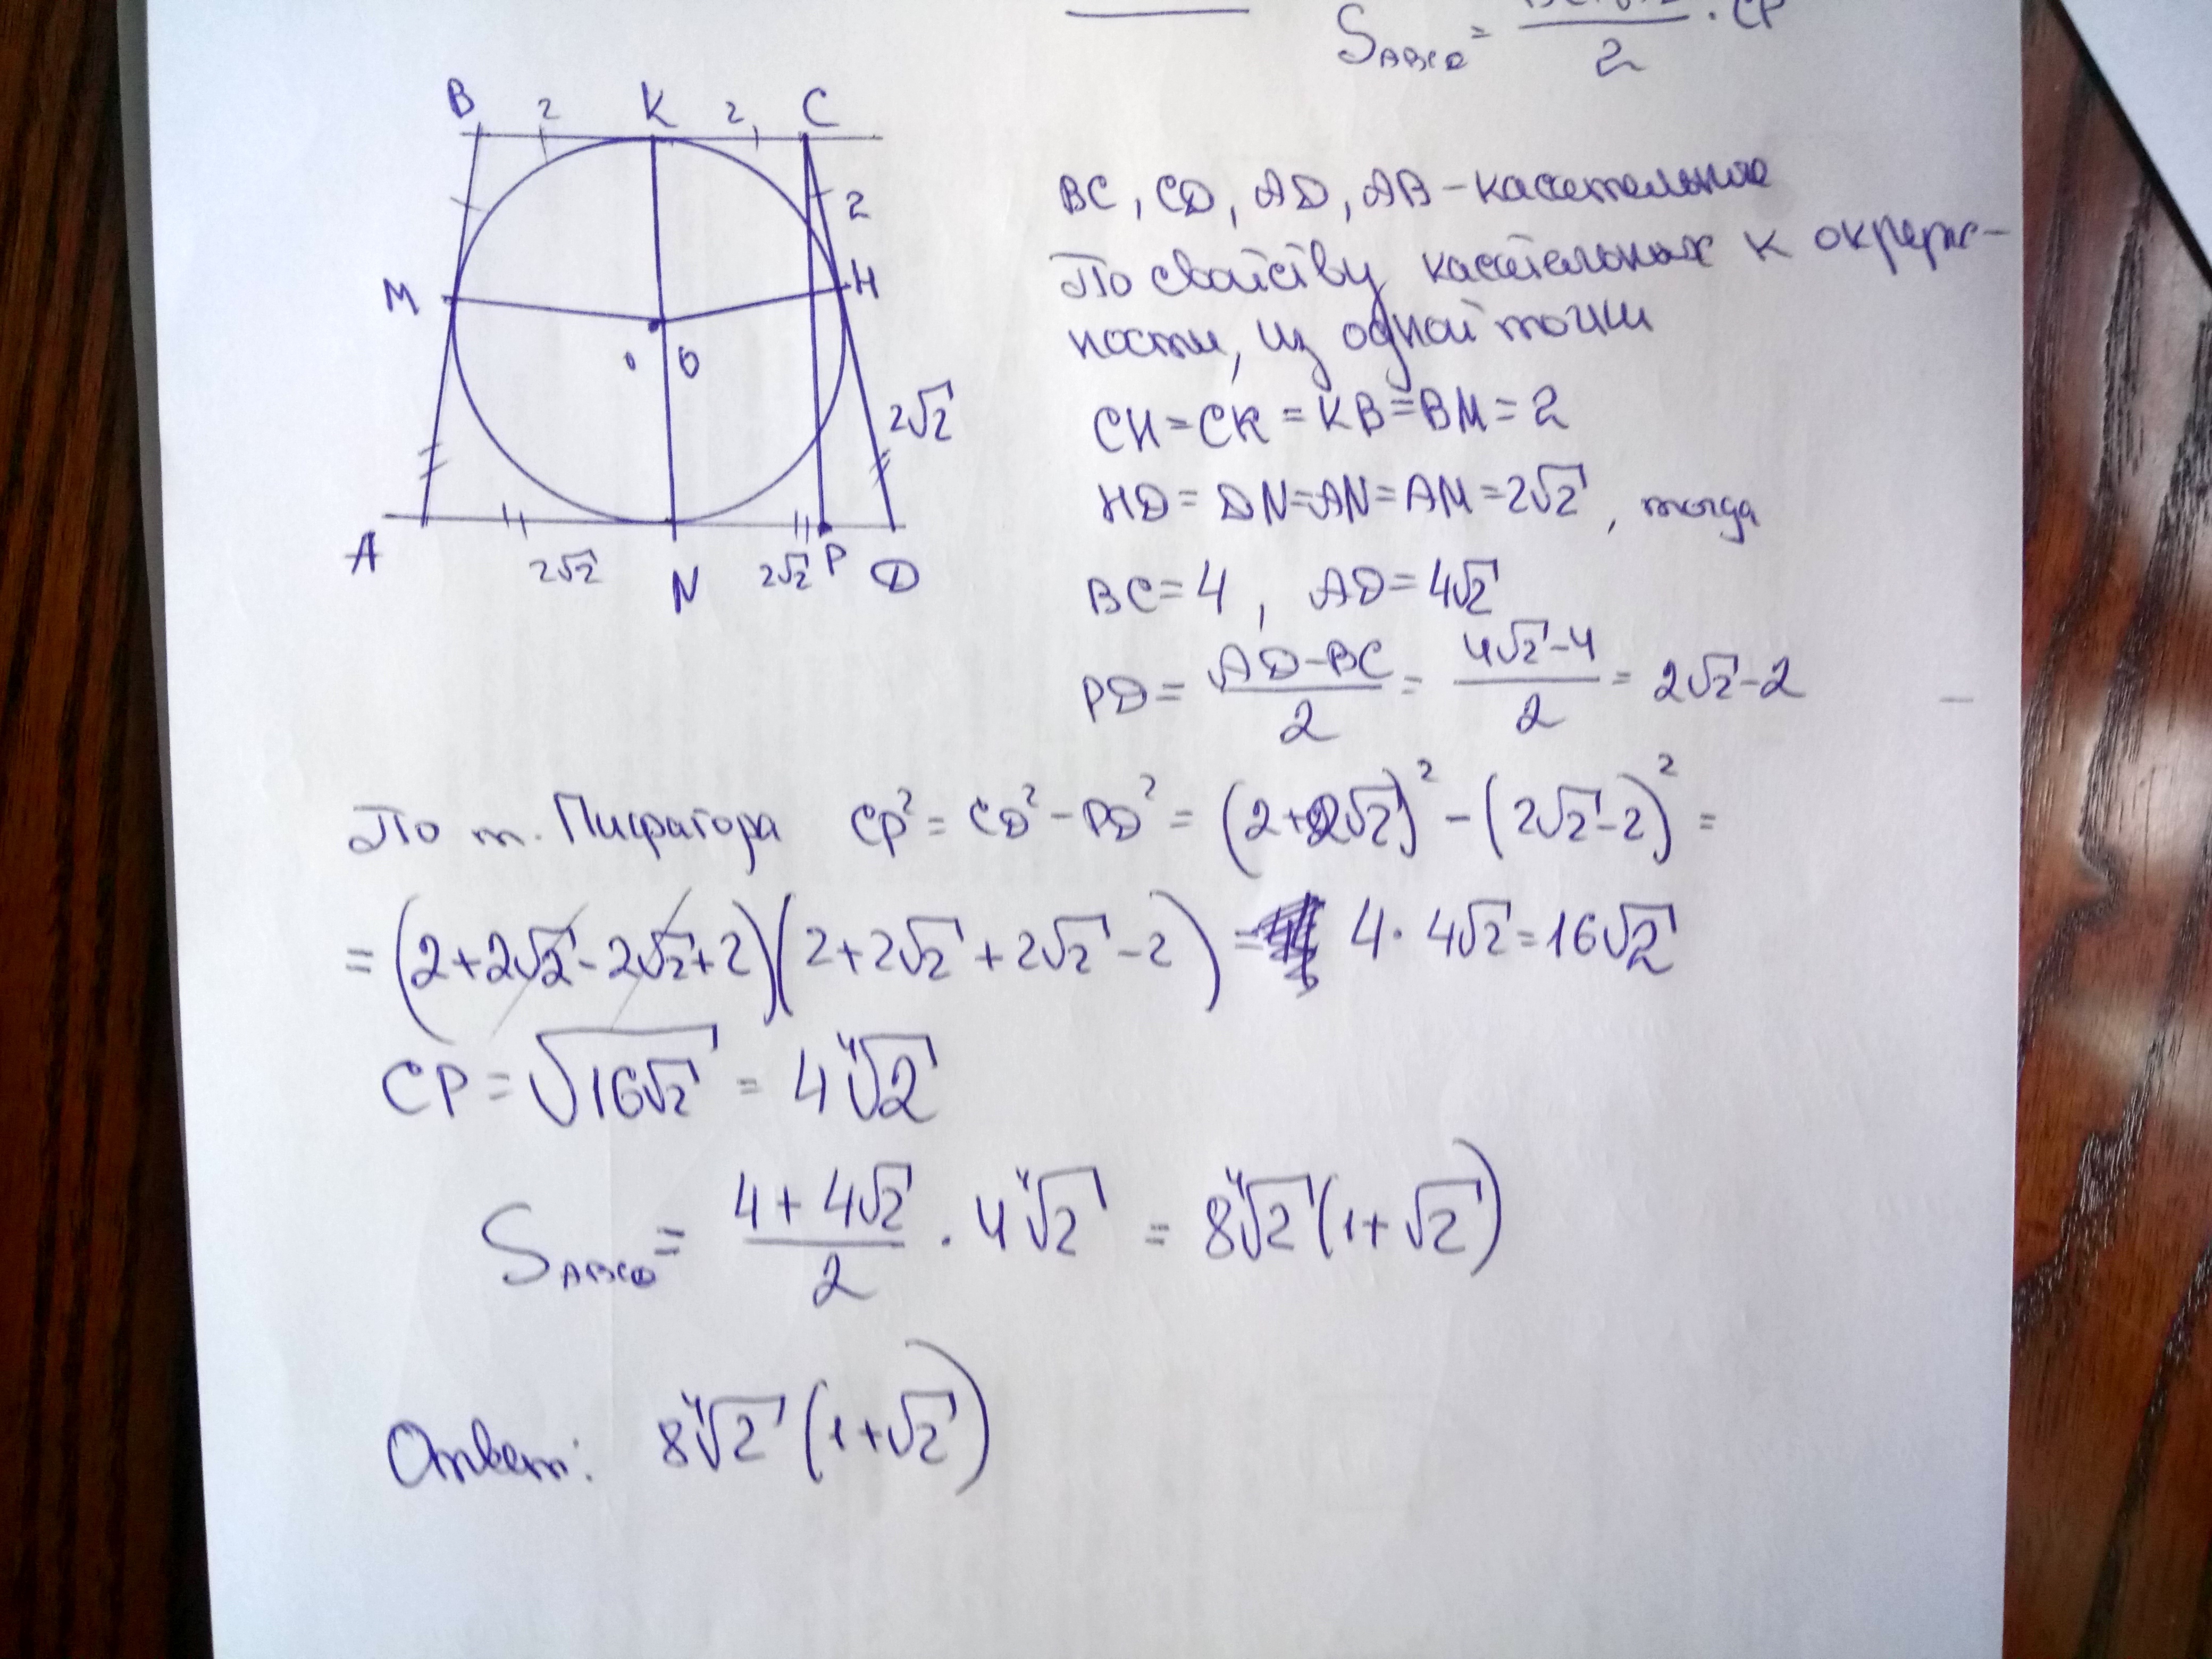 S_ABCD = ―/2 · CP
B 2 K 2 C
2
M H
O
2√2
A 2√2 N 2√2 P D
BC, CD, AD, AB – касательные
По свойству касательных к окруж-
ности, из одной точки
CH = CK = KB = BM = 2
HD = DN = AN = AM = 2√2, тогда
BC = 4, AD = 4√2
PD = (AD-BC)/2 = (4√2-4)/2 = 2√2-2
По т. Пифагора CP² = CD² - PD² = (2+2√2)² - (2√2-2)² =
= (2+2√2-2√2+2)(2+2√2+2√2-2) = 4·4√2 = 16√2
CP = √(16√2) = 4∜2
S_ABCD = (4+4√2)/2 · 4∜2 = 8∜2(1+√2)
Ответ: 8∜2(1+√2)